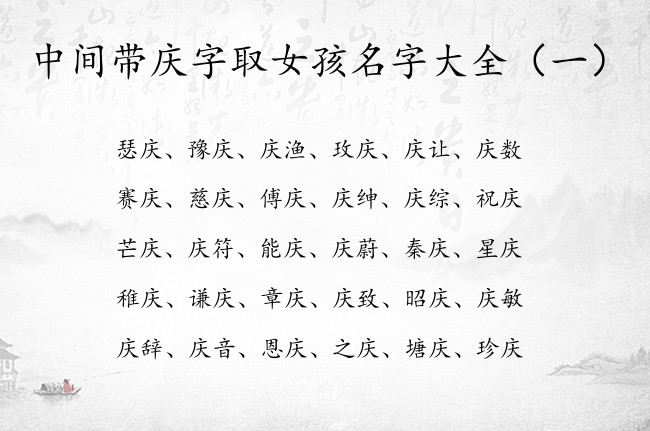 中间带庆字取女孩名字大全（一）
瑟庆、豫庆、庆渔、玫庆、庆让、庆数
赛庆、慈庆、傅庆、庆绅、庆综、祝庆
芒庆、庆符、能庆、庆蔚、秦庆、星庆
稚庆、谦庆、章庆、庆致、昭庆、庆敏
庆辞、庆音、恩庆、之庆、塘庆、珍庆